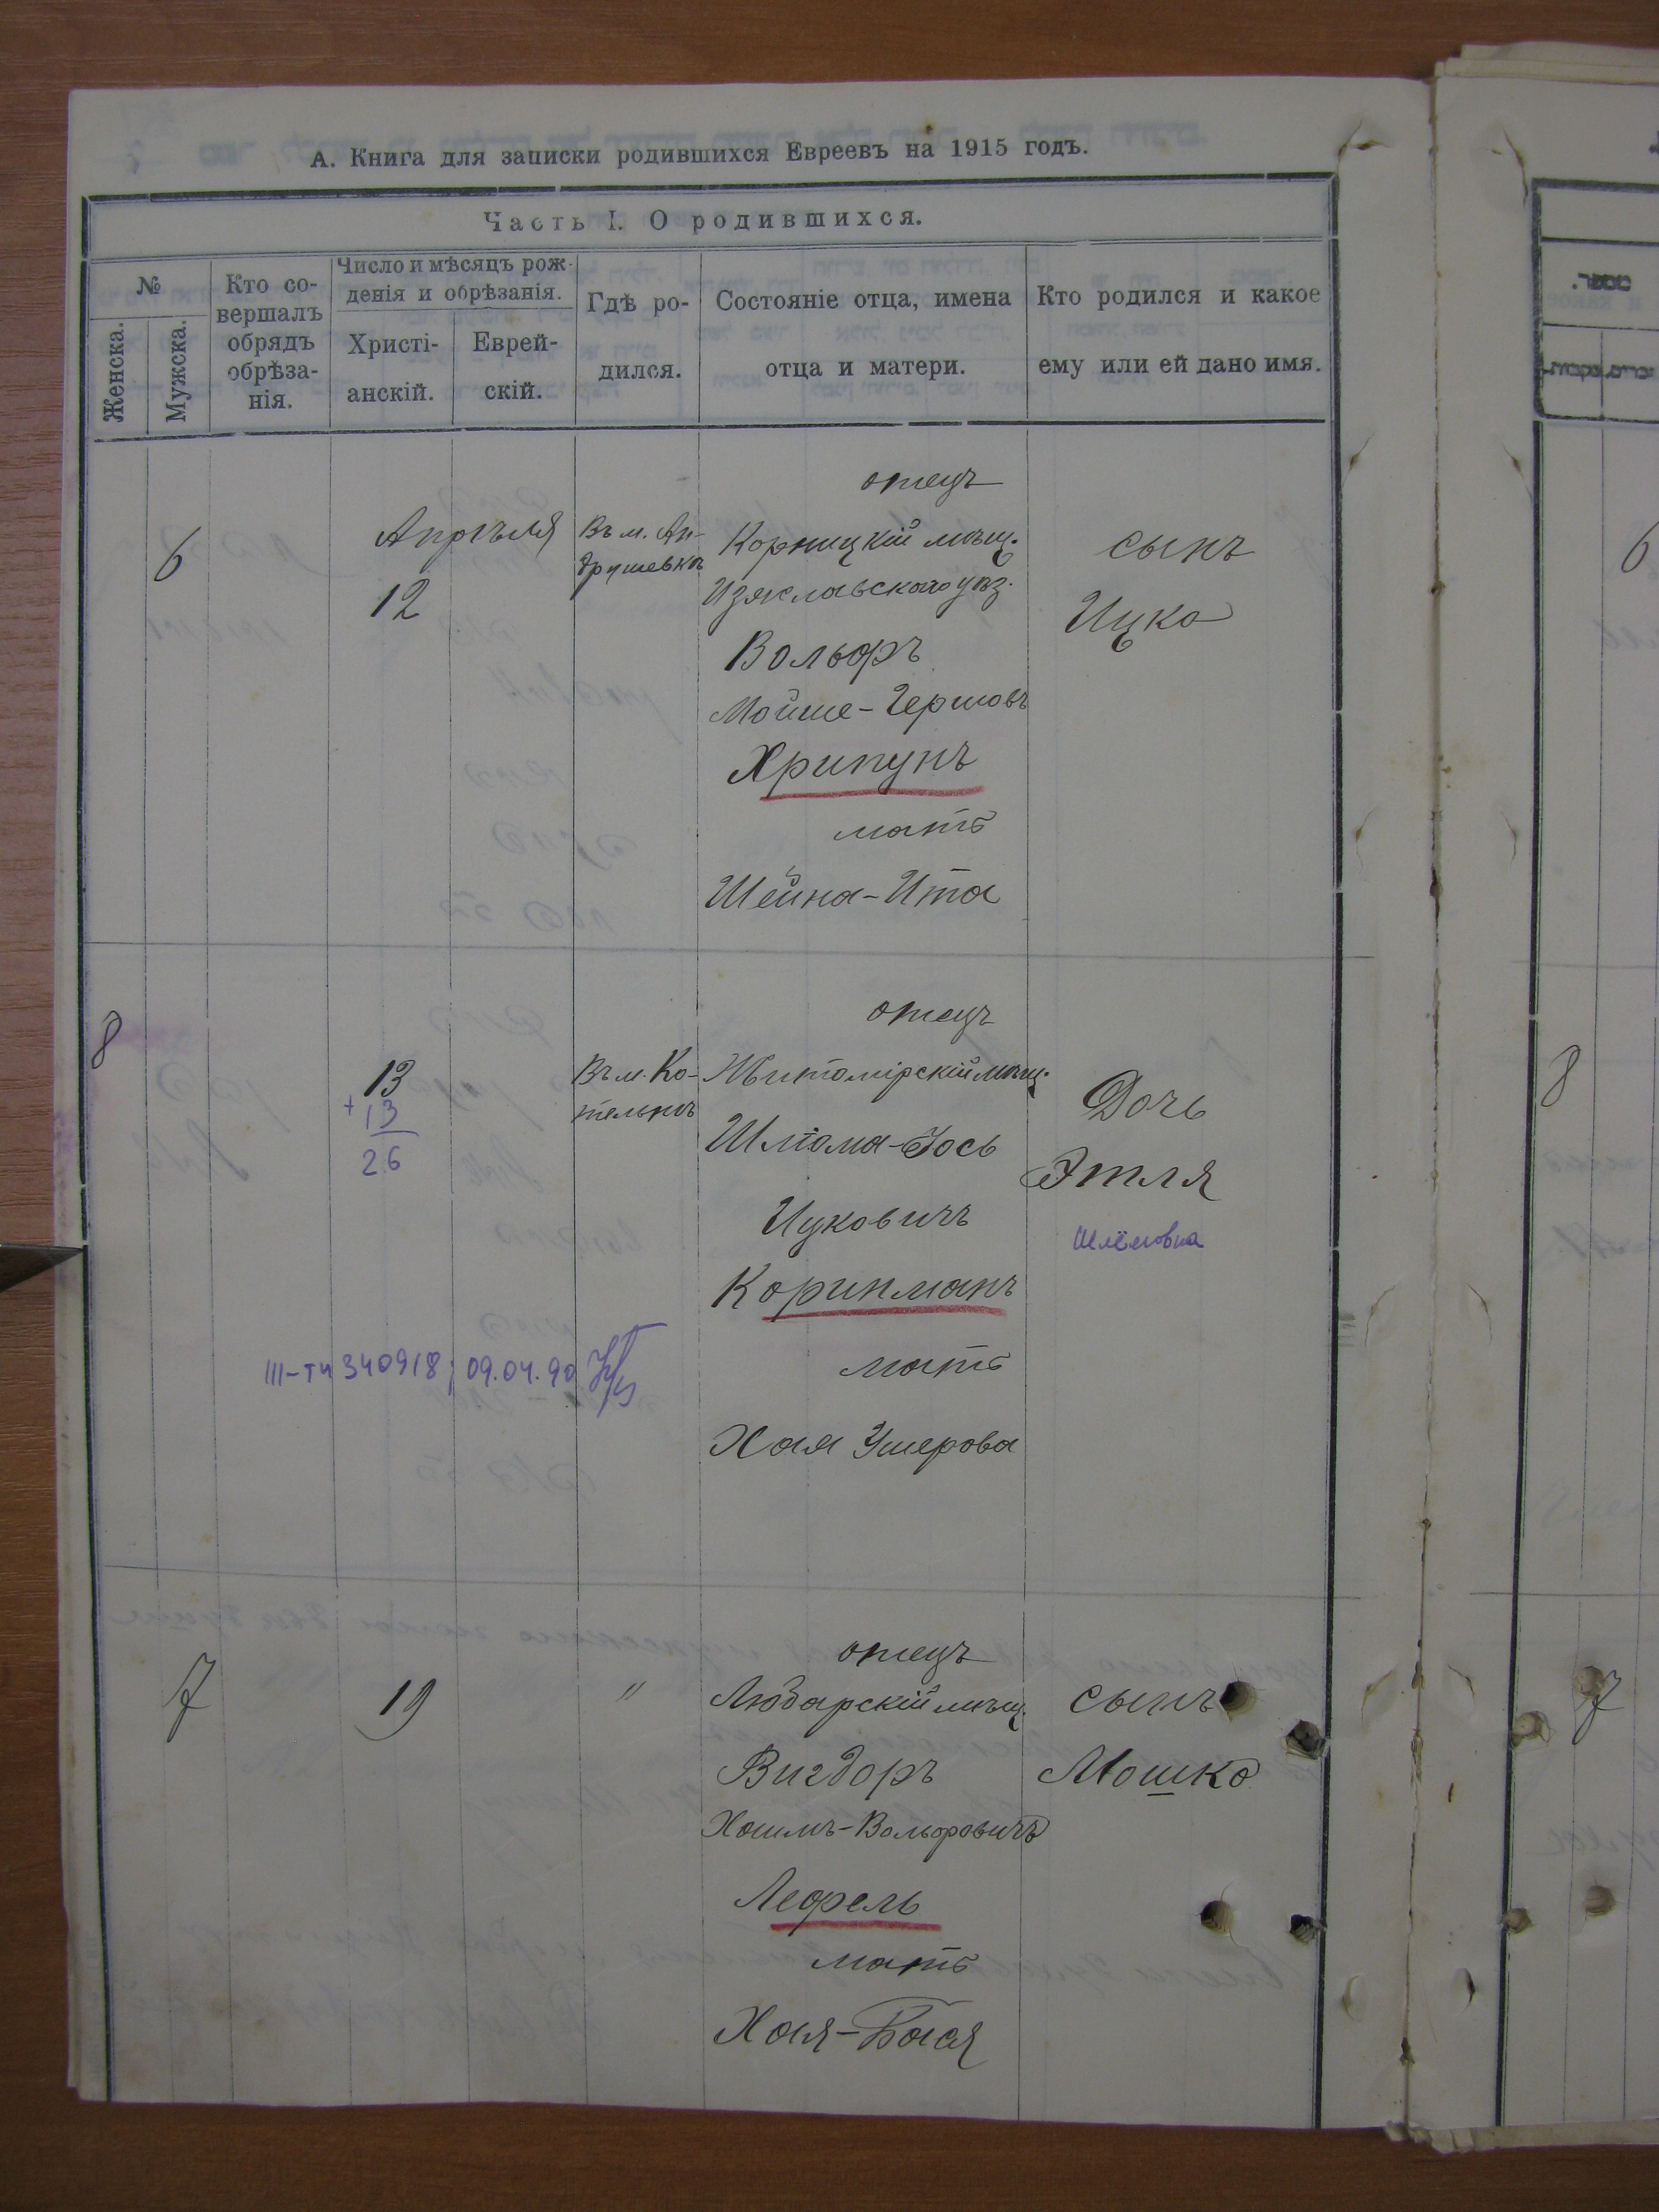 А. Книга для записки родившихся Евреевъ на 1915 годъ.
Часть I. О родившихся.
№
Женска.
Мужска.
Кто со-
вершалъ
обрядъ
обрѣза-
нія.
Число и мѣсяцъ рож-
денія и обрѣзанія.
Христі-
анскій.
Еврей-
скій.
Гдѣ ро-
дился.
Состояніе отца, имена
отца и матери.
Кто родился и какое
ему или ей дано имя.
6
Апрѣля
12
Въ м. Ан-
друшевкѣ
отецъ
Корницкій мѣщ.
Изяславскаго уѣз.
Вольфъ
Мойше-Гершовъ
Хрипунъ
мать
Шейна-Ита
сынъ
Ицко
6
8
13
+13
26
Въ м. Ко-
тельнѣ
отецъ
Житомірскій мѣщ.
Шлома-Іось
Ицковичъ
Коринманъ
мать
Хая Ушерова
Дочь
Этля
Шлёмовна
III-ТИ 340918; 09.04.90
8
7
19
"
отецъ
Любарскій мѣщ.
Вигдоръ
Хаимъ-Вольфовичъ
Лефель
мать
Хая-Бася
сынъ
Мошко
7